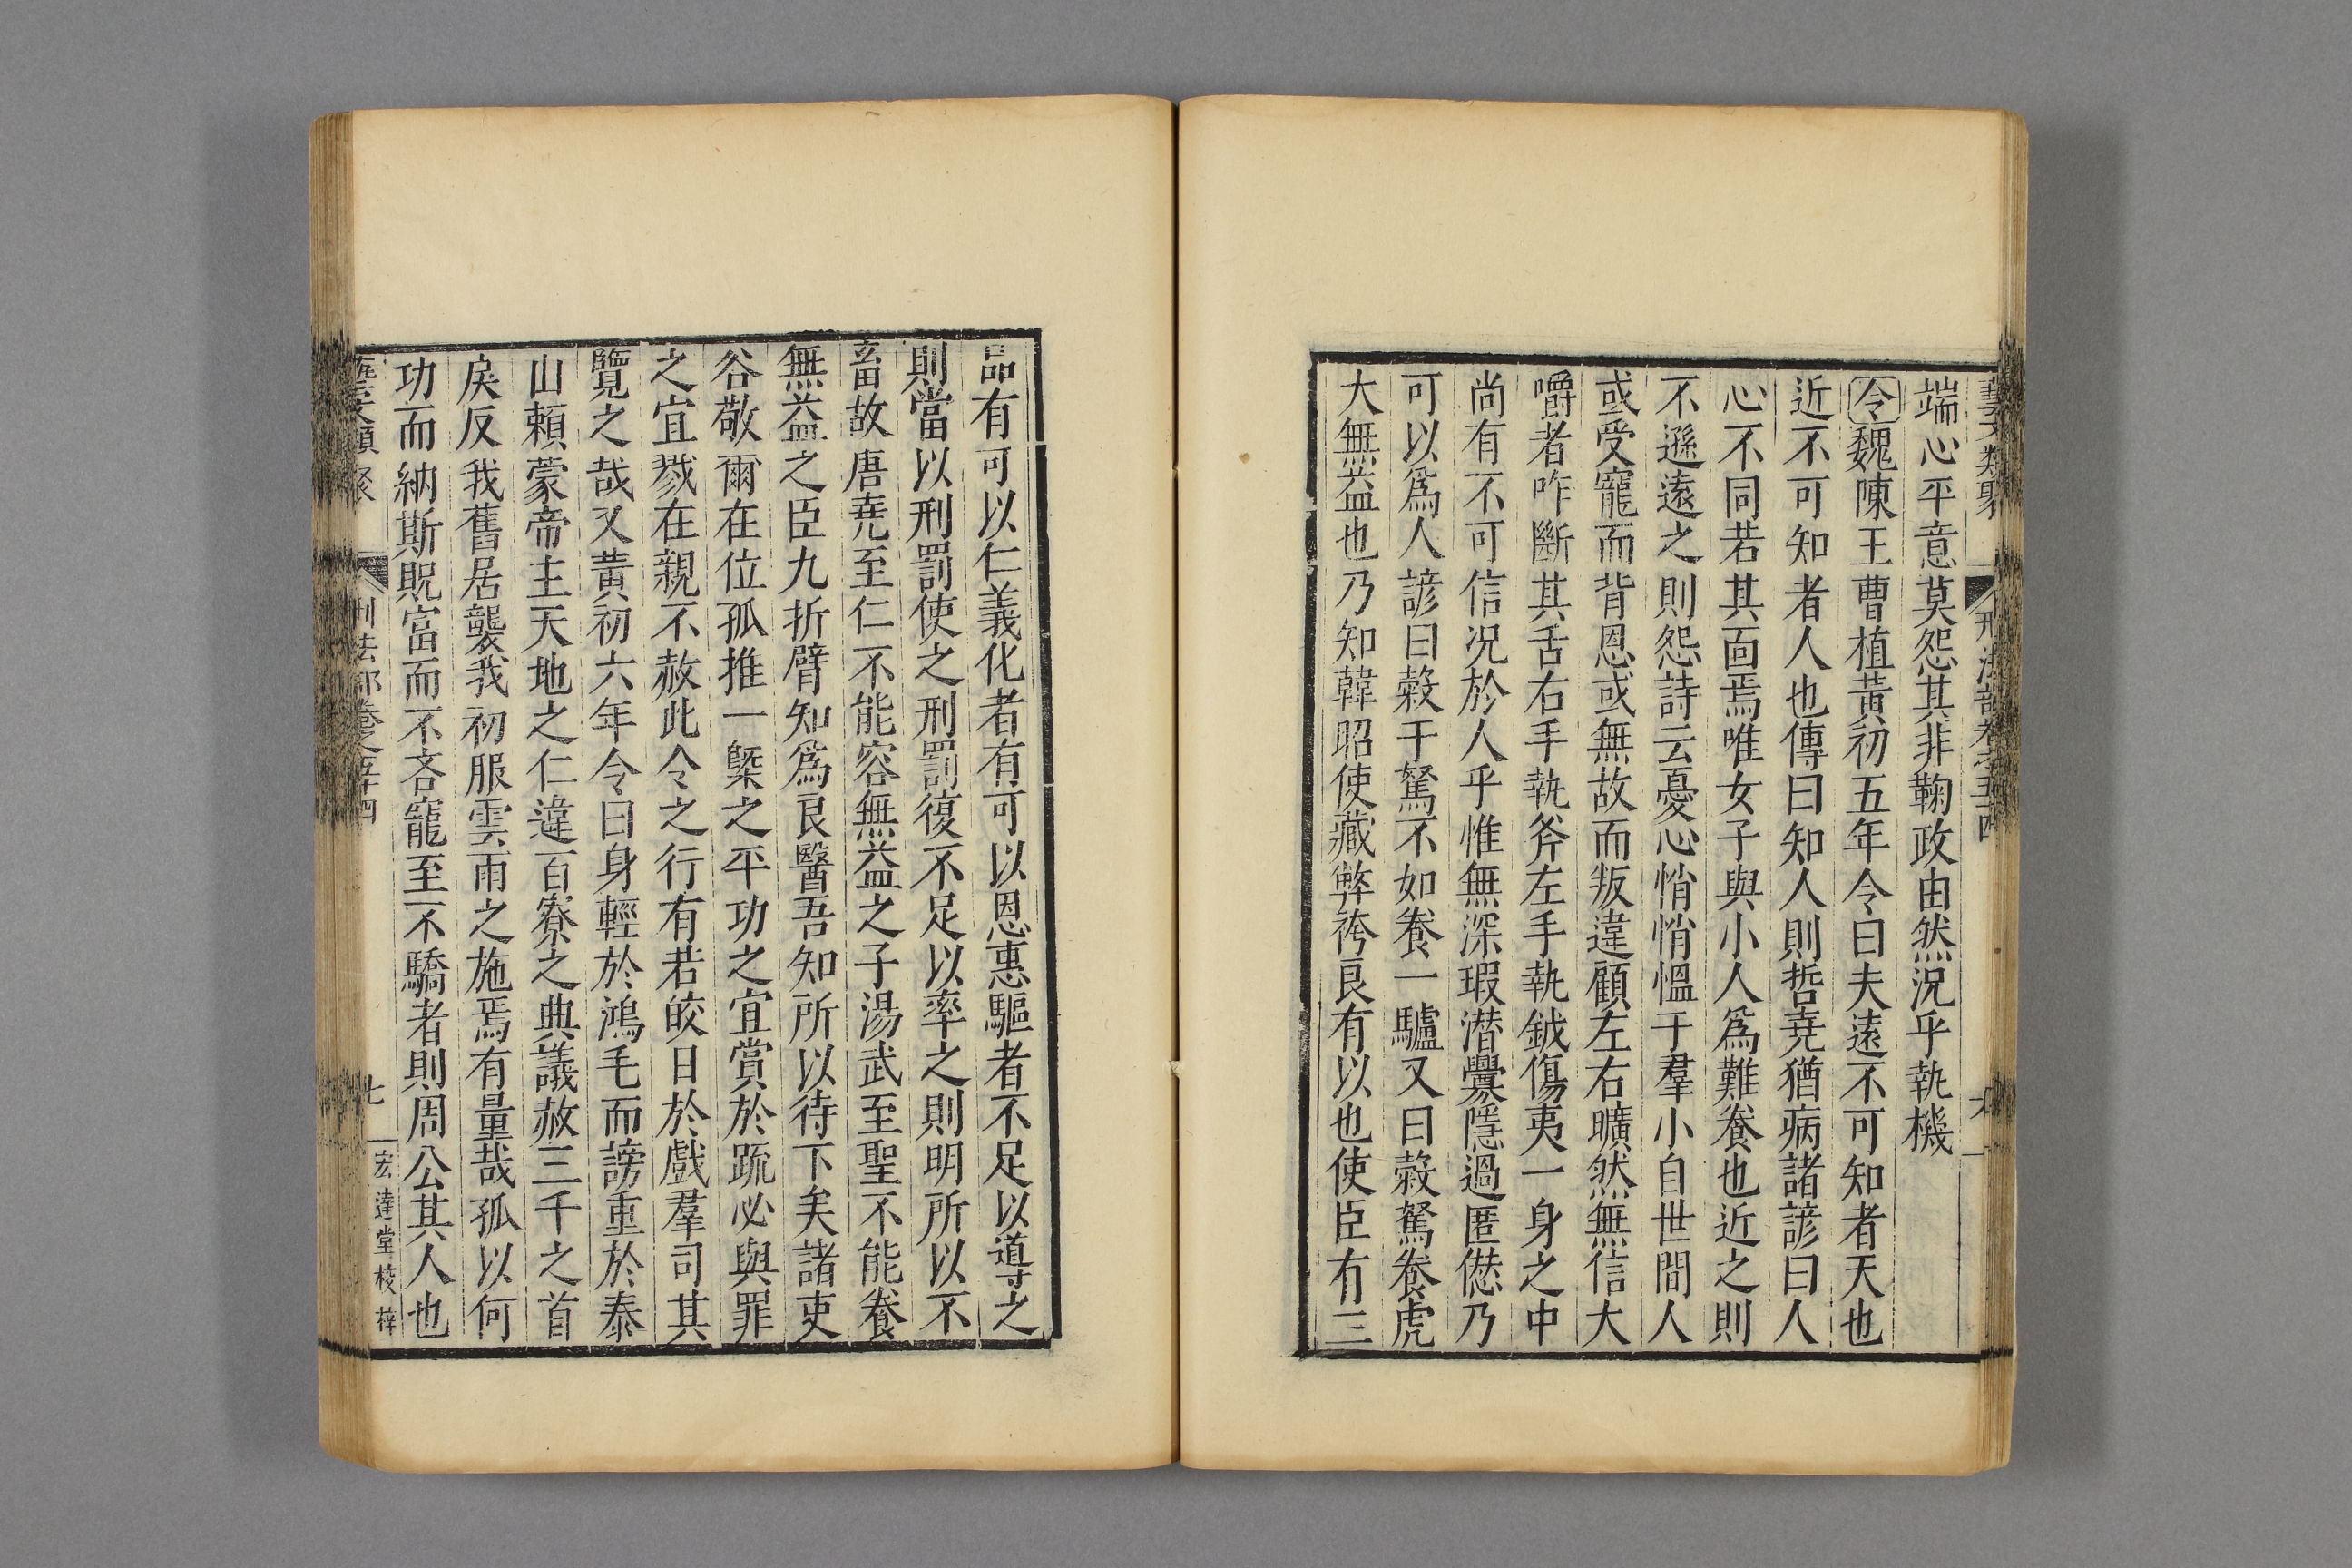 藝文類聚 刑法部卷之五十四 六
端心平意莫怨其非鞠政由然況乎執機
令魏陳王曹植黃初五年令曰夫遠不可知者天也
近不可知者人也傳曰知人則哲堯猶病諸諺曰人
心不同若其面焉唯女子與小人爲難養也近之則
不遜遠之則怨詩云憂心悄悄慍于羣小自世間人
或受寵而背恩或無故而叛違顧左右曠然無信大
嚼者咋斷其舌右手執斧左手執鉞傷夷一身之中
尚有不可信況於人乎惟無深瑕潛釁隱過匿愆乃
可以爲人諺曰穀千駑不如養一驢又曰穀駑養虎
大無益也乃知韓昭使藏弊袴良有以也使臣有三
品有可以仁義化者有可以恩惠驅者不足以導之
則當以刑罰使之刑罰復不足以率之則明所以不
畜故唐堯至仁不能容無益之子湯武至聖不能養
無益之臣九折臂知爲良醫吾知所以待下矣諸吏
谷敬爾在位孤推一槩之平功之宜賞於疏必與罪
之宜戮在親不赦此令之行有若皎日於戲羣司其
覽之哉又黃初六年令曰身輕於鴻毛而謗重於泰
山賴蒙帝主天地之仁違百寮之典議赦三千之首
戾反我舊居襲我初服雲雨之施焉有量哉孤以何
功而納斯貺富而不吝寵至不驕者則周公其人也
藝文類聚 刑法部卷之五十四 七 宏達堂校梓